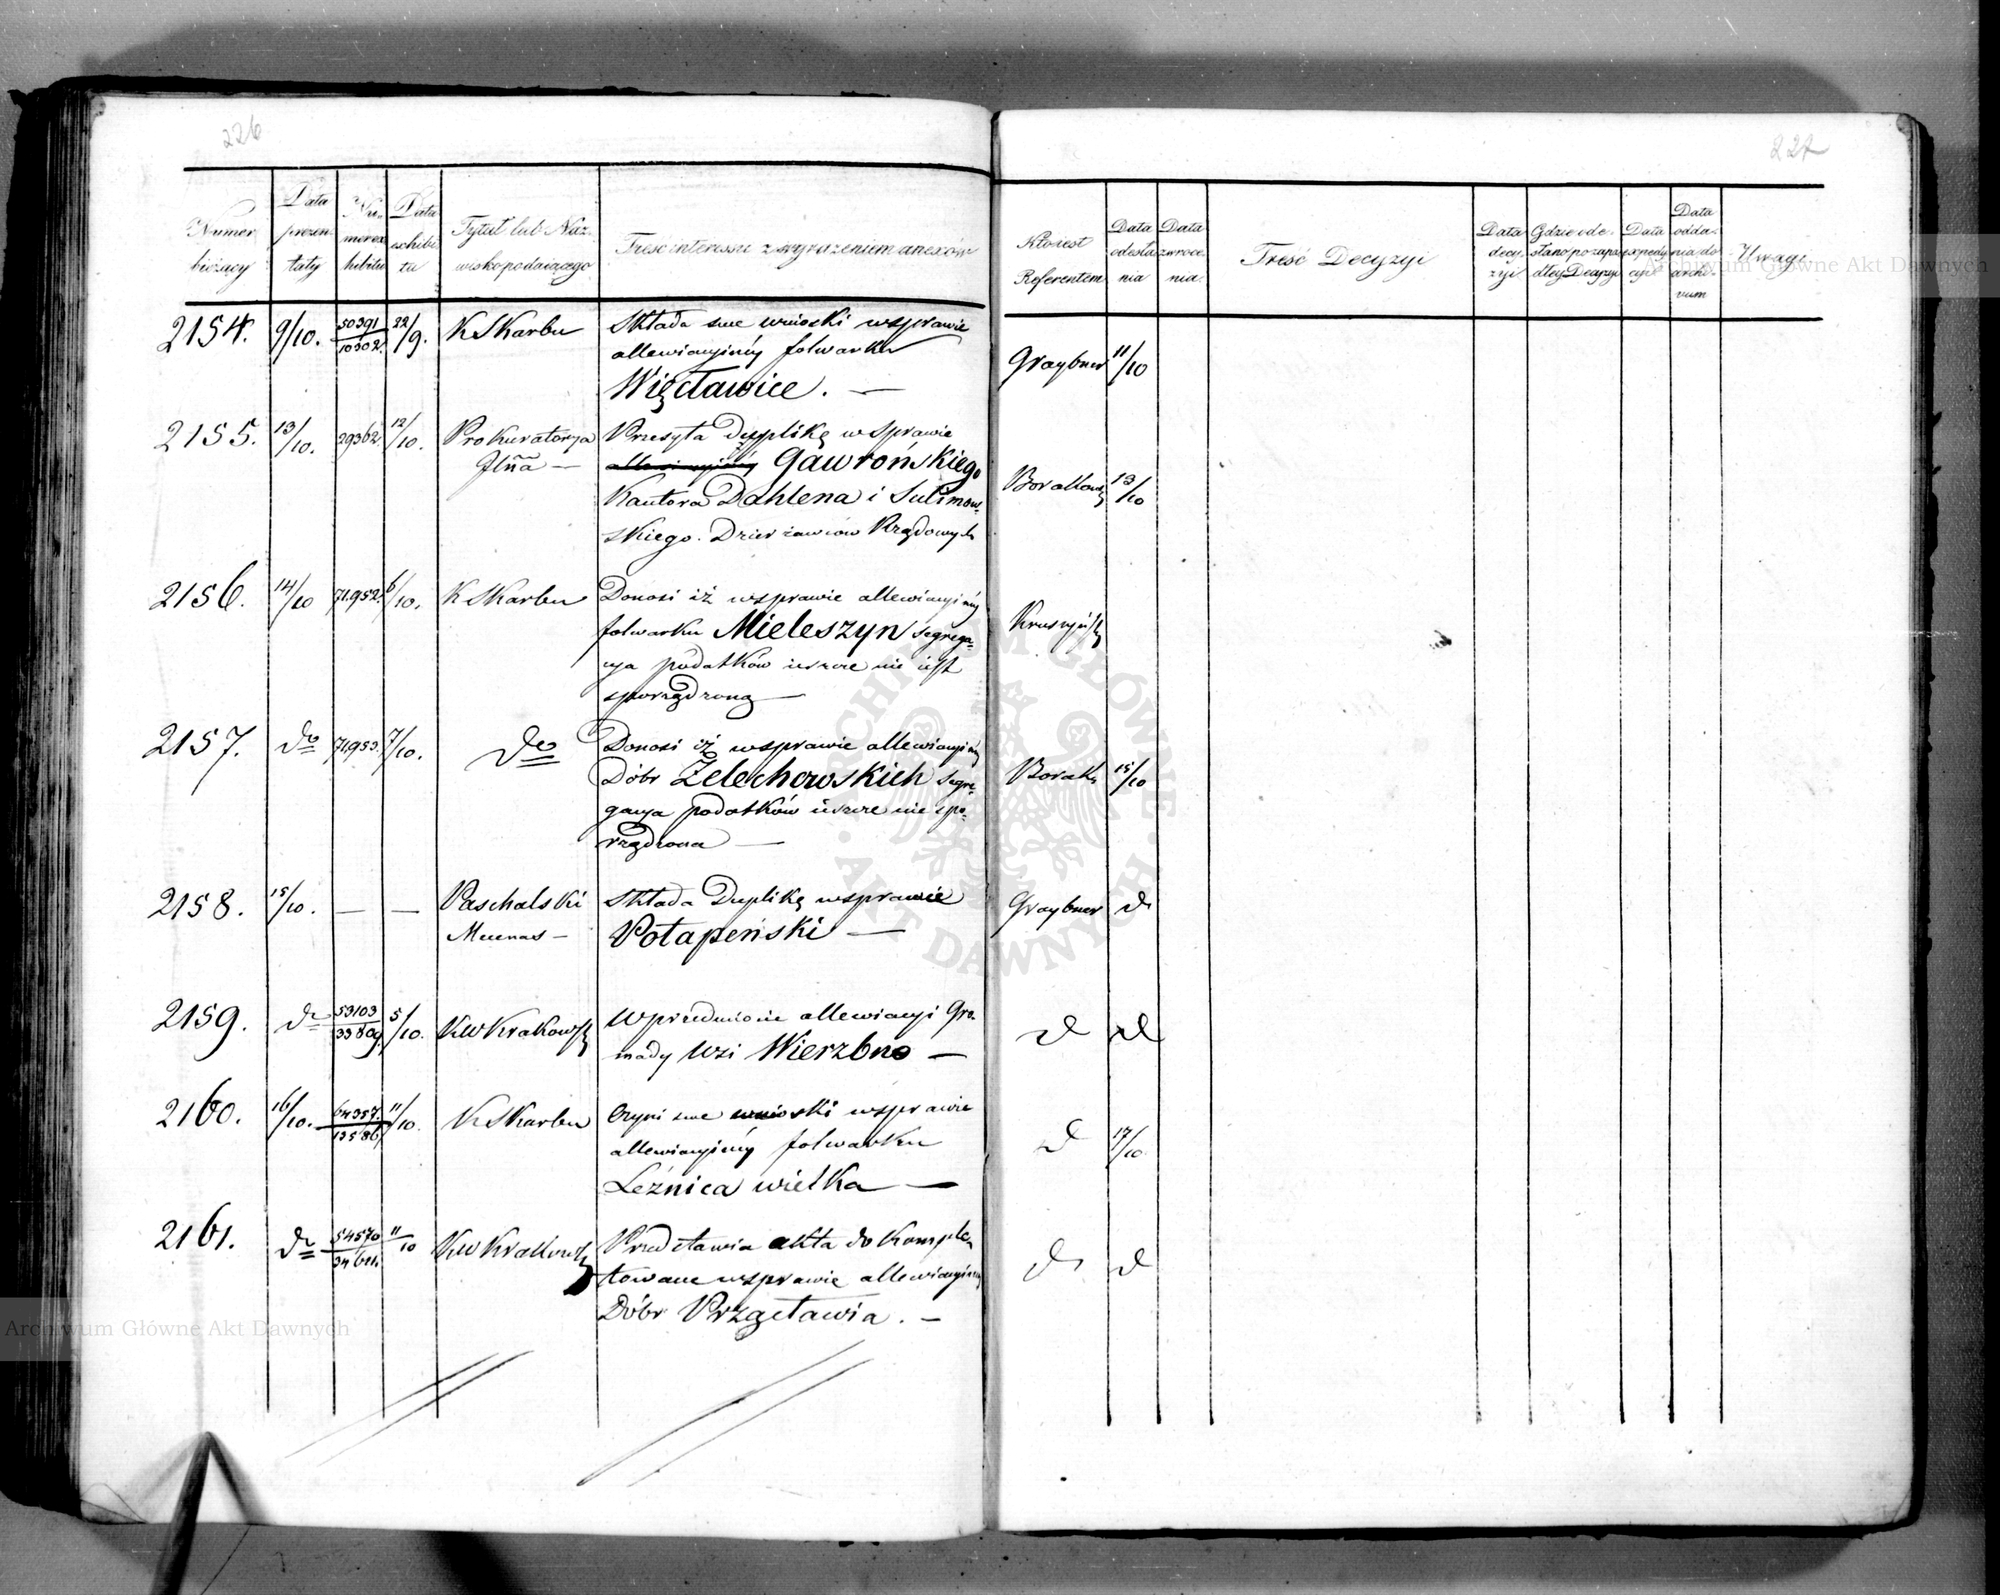 226
227
Numer bieżący
Data prezentaty
Numer exhibitu
Data exhibitu
Tytuł lub Nazwisko podaiącego
Treść interessu z wyrażeniem anexów
Kto iest Referentem
Data odesłania
Data zwrocenia
Treść Decyzyi
Data decyzyi
Data expedycyi
Data oddania do archivum
Uwagi
2154. 9/10. 50391/10302. 22/9. K Skarbu Składa swe wnioski wsprawie
folwarku
Więcławice. —
Graybner 11/10
2155. 13/10. 29362. 12/10. Prokuratorya Przesyła Duplikę wsprawie
Gawrońskiego
Kantora Dahlena i Sulimow-
skiego. Dzierżawców Rządowych
13/10
2156. 14/10 71952. 6/10. K Skarbu Donosi iż wsprawie
folwarku Mieleszyn segrega-
cya podatków ieszcze nie iest
sporządzoną —
2157. do 71953. 7/10. do Donosi iż wsprawie
Dóbr Zelechowskich segre-
gacya podatków ieszcze nie spo-
rządzona —
15/10
2158. 15/10. — — Paschalski Składa Duplikę wsprawie
Mecenas — Potapeński —
Graybner d
2159. do 53103/33809 5/10. KW Krakowsk W przedmiocie allewiacyi Gro-
mady Wsi Wierzbno —
d d
2160. 16/10. 64357./13586 11/10. K Skarbu Czyni swe wnioski wsprawie
folwarku
Leźnica wielka —
d 17/10
2161. do 54570 11/10 KW Krakowsk Przedstawia akta do Komple-
towane wsprawie
Dóbr Przecławia. —
d d
Archiwum Główne Akt Dawnych
Archiwum Główne Akt Dawnych
ARCHIWUM GŁÓWNE · AKT DAWNYCH ·